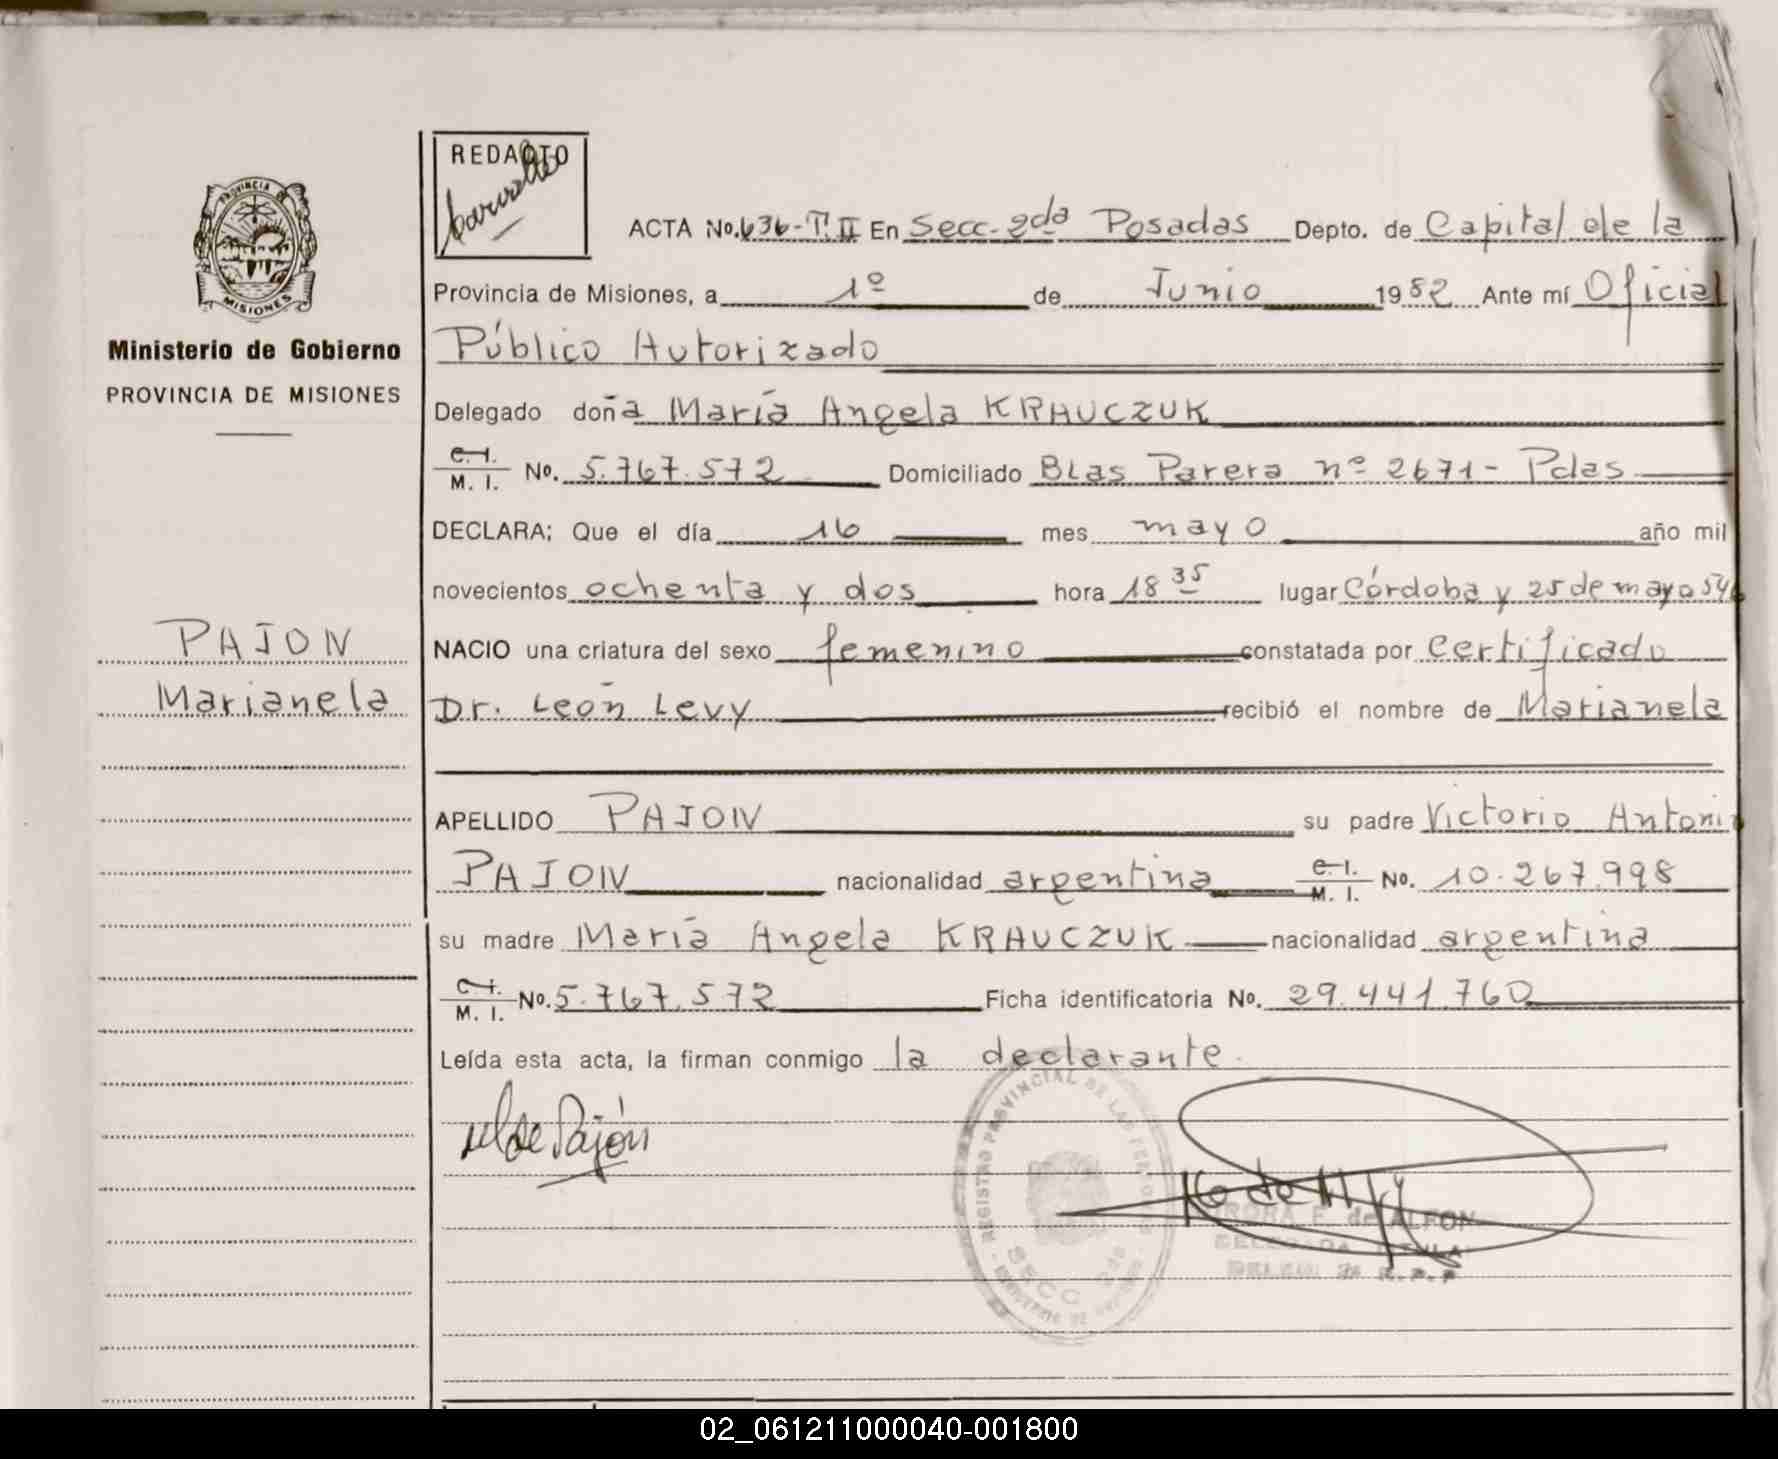 PROVINCIA DE
MISIONES
Ministerio de Gobierno
PROVINCIA DE MISIONES
PAJON
Marianela
REDACTO
ACTA No. 636-Tº II En Secc. 2da Posadas Depto. de Capital de la
Provincia de Misiones, a 1º de Junio 1982 Ante mí Oficial
Público Autorizado
Delegado doña María Angela KRAUCZUK
C. I.
M. I. No. 5.767.572 Domiciliado BLas Parera nº 2671- Pdas
DECLARA; Que el día 16 mes mayo año mil
novecientos ochenta y dos hora 18 35 lugar Córdoba y 25 de mayo 546
NACIO una criatura del sexo femenino constatada por certificado
Dr. León Levy recibió el nombre de Marianela
APELLIDO PAJON su padre Victorio Antonio
PAJON nacionalidad argentina C. I. M. I. No. 10.267.998
su madre María Angela KRAUCZUK nacionalidad argentina
C. I.
M. I. No. 5.767.572 Ficha identificatoria No. 29.441.760
Leída esta acta, la firman conmigo la declarante.
de Pajón
REGISTRO PROVINCIAL DE LAS PERSONAS
SECC. 2da
de ALFON
DELEGADA TITULAR
02_061211000040-001800